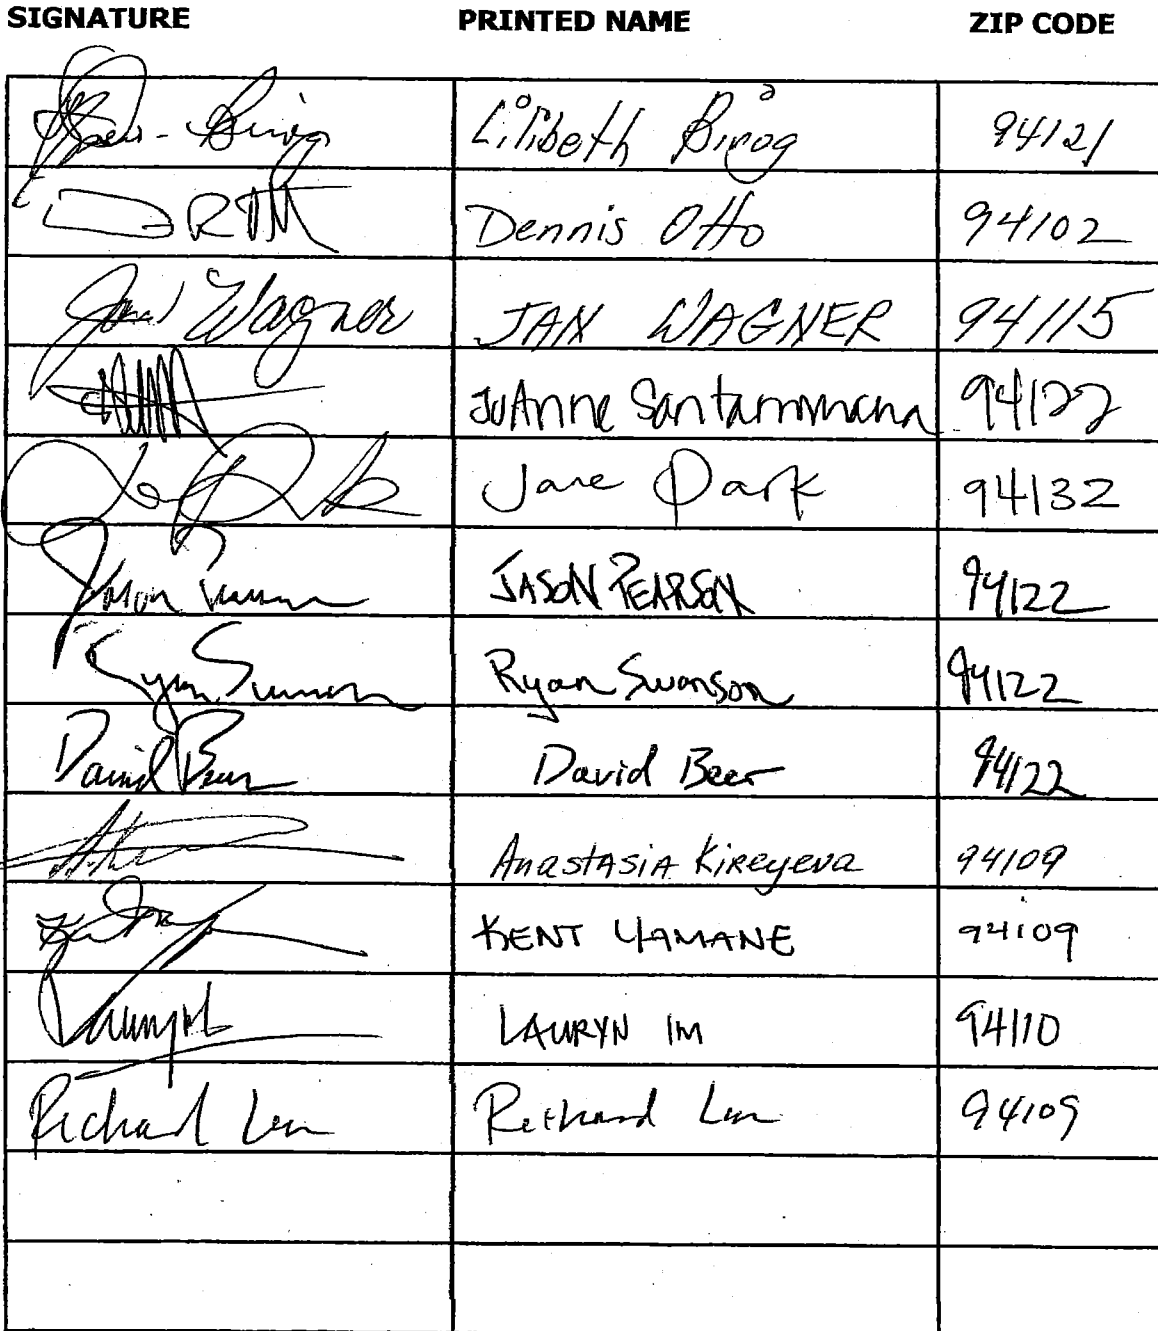 SIGNATURE PRINTED NAME ZIP CODE
Lilibeth Birog 94121
Dennis Otto 94102
Jan Wagner JAN WAGNER 94115
JoAnne Santammana 94122
Jane Park 94132
Jason JASON PEARSON 94122
Ryan Swanson 94122
David Beer David Beer 94122
AnastasiA Kireyeva 94109
KENT YAMANE 94109
LAURYN IM 94110
Richard Richard 94109